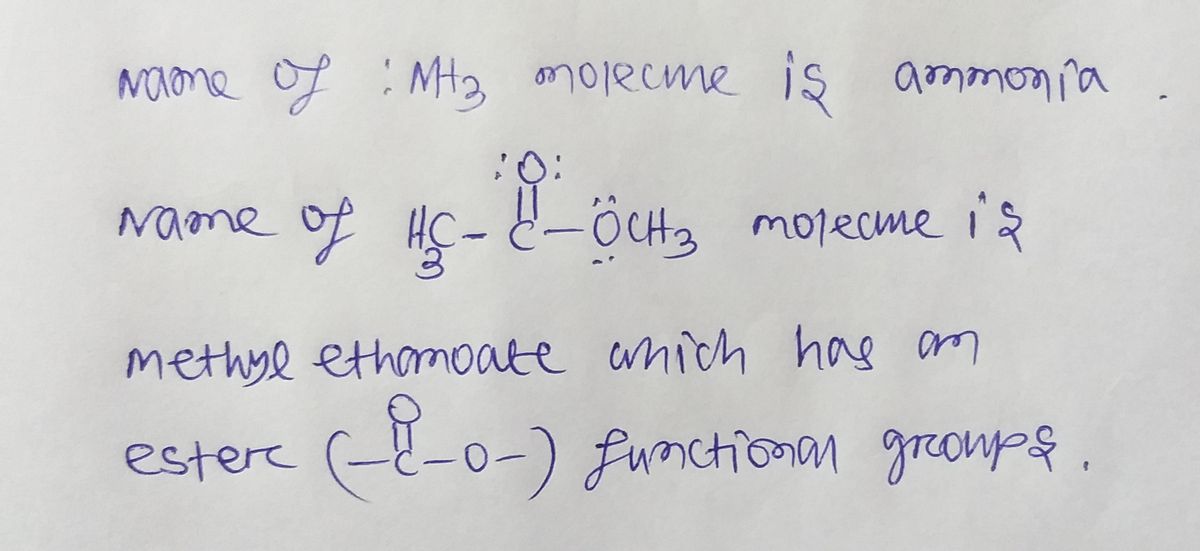 Name of :NH3 molecule is ammonia .
Name of H3C-C(=Ö:)-ÖCH3 molecule is
methyl ethanoate which has an
ester (-C(=O)-O-) functional groups .